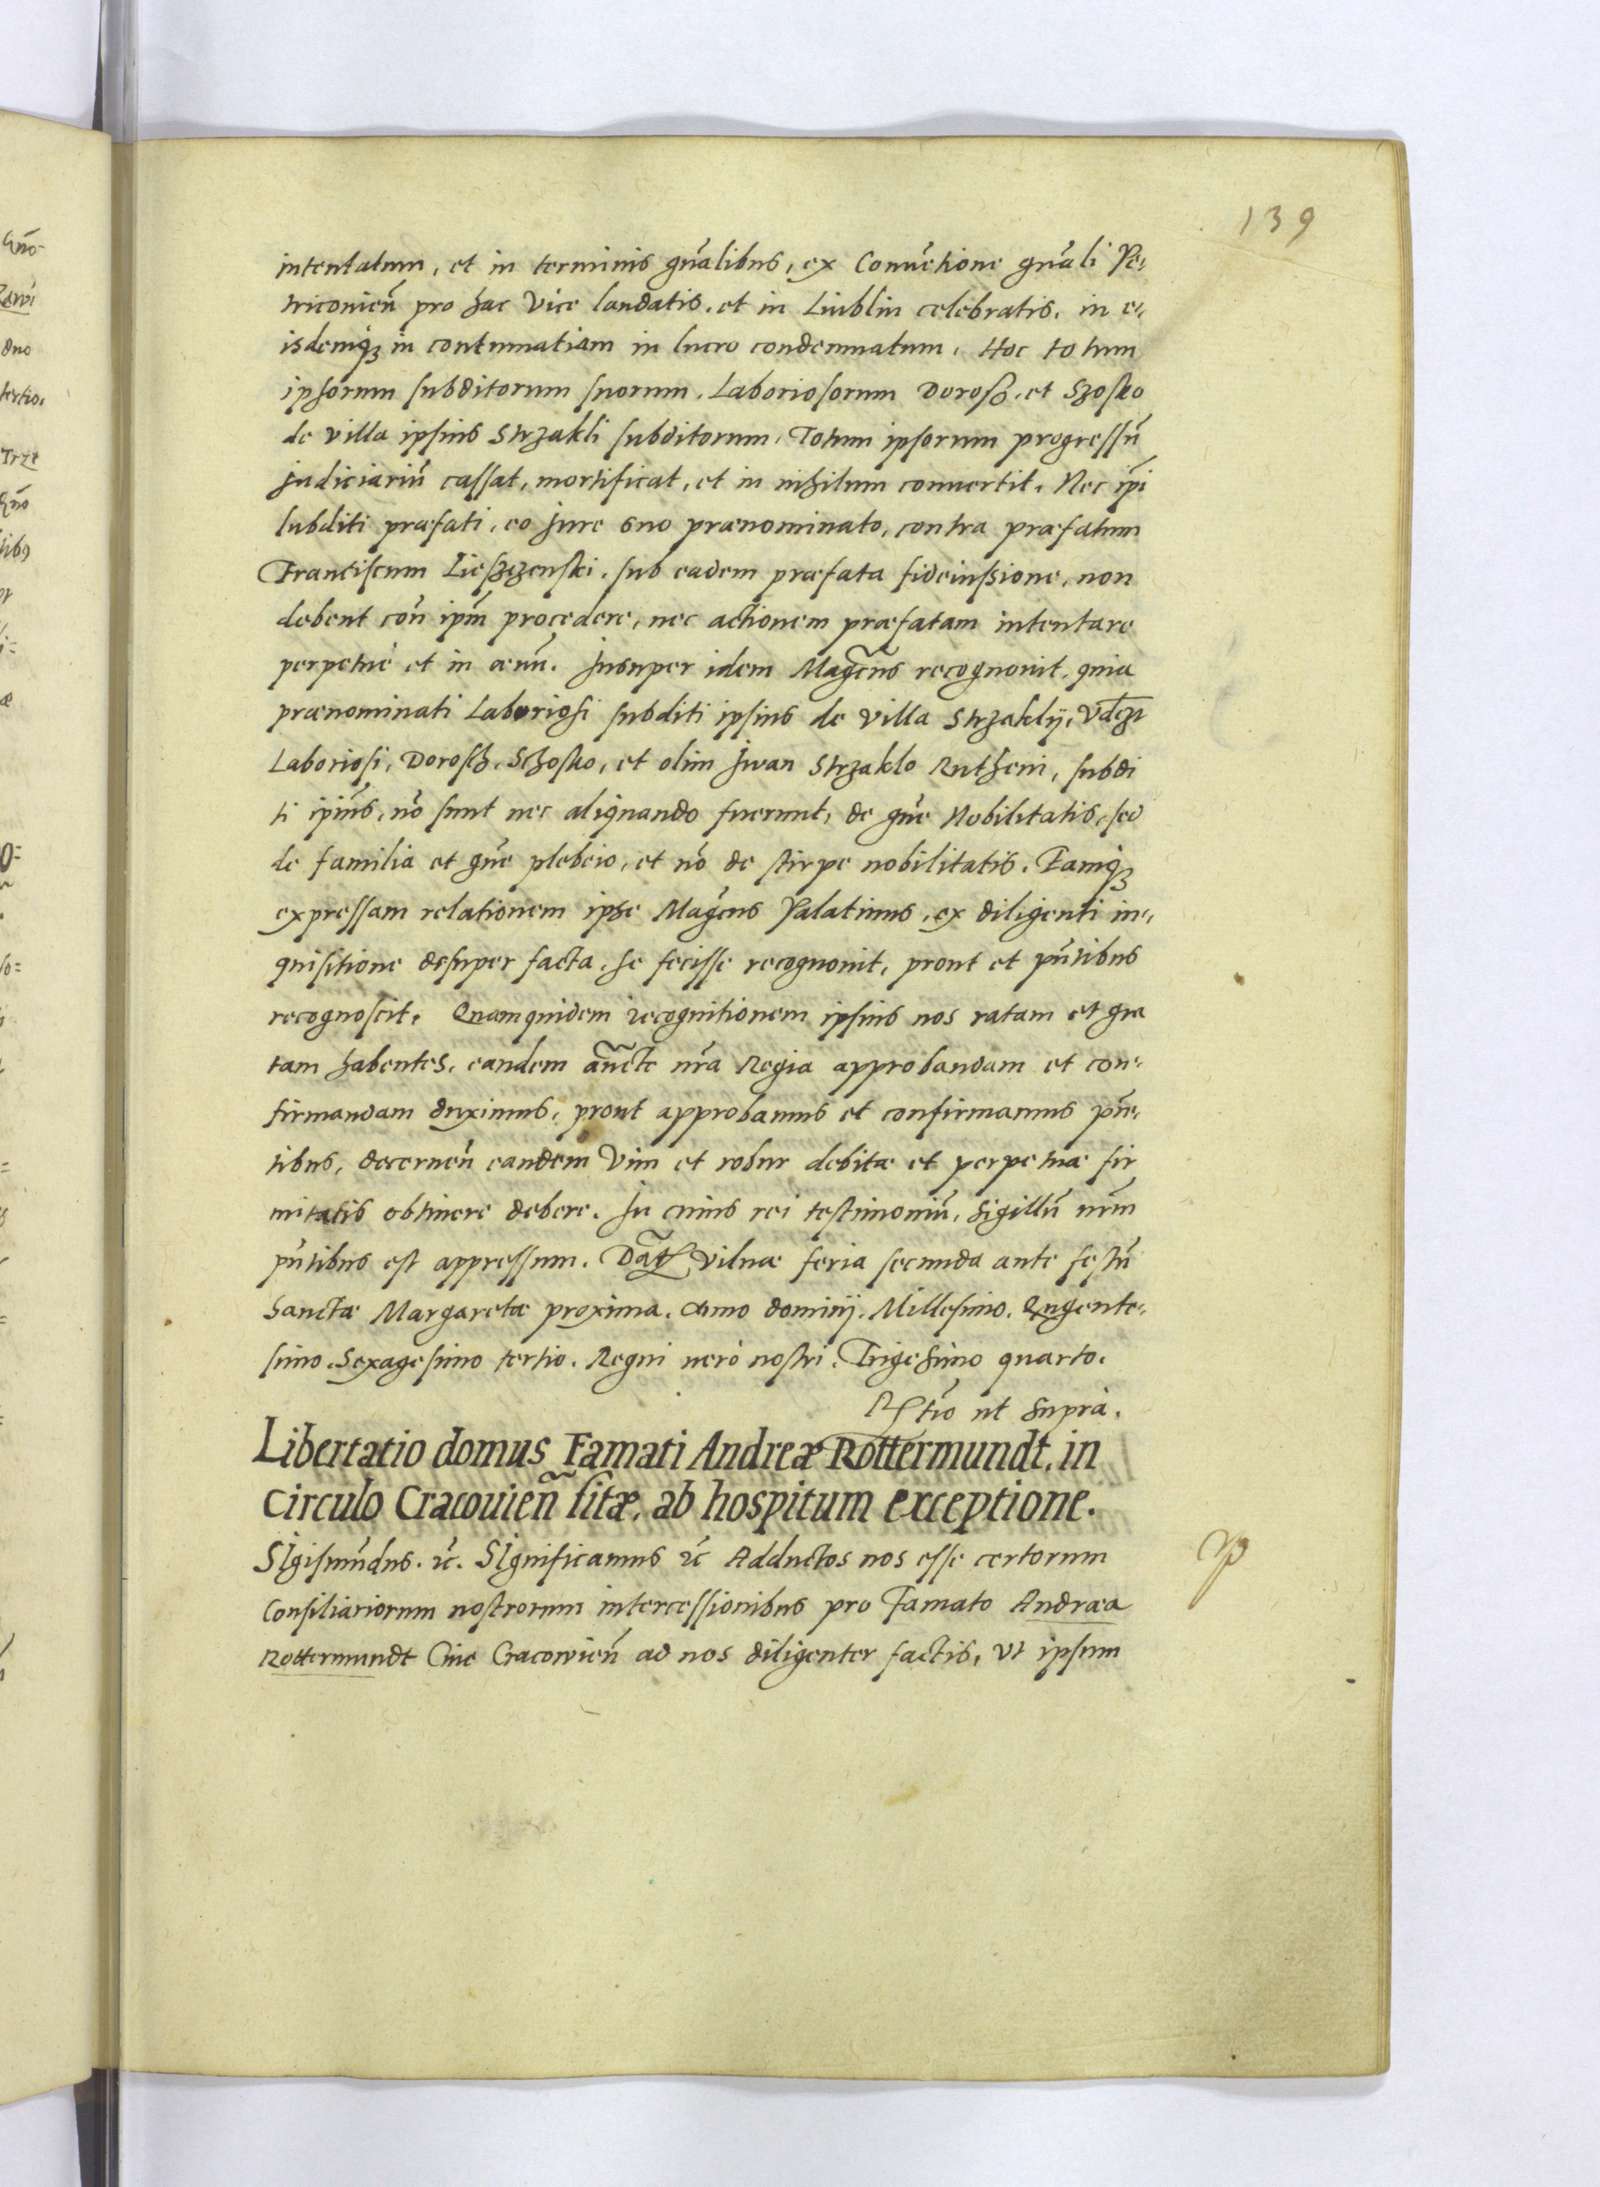 139
intentatum, et in terminis gnãlibus, ex Conuẽtione gnãli Pe-
triconieñ pro hac Vice laudatis. et in Liublin celebratis. in e-
isdemqꝫ in contumatiam in lucro condemnatum. Hoc totum
ipsorum subditorum suorum. Laboriosorum Dorosz. et Szosko
de villa ipsius Strzakli subditorum. Totum ipsorum progressũ
judiciariũ cassat, mortificat, et in nihilum conuertit. Nec ip̃i
subditi præfati, eo jure suo prænominato, contra præfatum
Franciscum Lieszczenski. sub eadem præfata fideiussione, non
debent cõn ip̃m procedere, nec actionem præfatam intentare
perpetuè et in æuũ. Insuper idem Mag̃cus recognouit, quia
prænominati Laboriosi subditi ipsius de villa Strzaklij, Vdczt
Laboriosi, Dorosch. Schosko, et olim Jwan Strzaklo Rutheni, subdi
ti ipiũs, nõ sunt nec aliquando fuerunt, de gñe Nobilitatis, sed
de familia et gñe plebeio, et nõ de stirpe nobilitatis. Eamqꝫ
expressam relationem ipse Mag̃cus Palatinus, ex diligenti in-
quisitione desuper facta. se fecisse recognouit, prout et pñtibus
recognoscit. Quamquidem recognitionem ipsius nos ratam et gra
tam habentes, eandem auñcte nr̃a Regia approbandam et con-
firmandam duximus, prout approbamus et confirmamus pñ-
tibus, decerneñ eandem Vim et robur debitæ et perpetuæ fir
mitatis obtinere debere. In cuius rei testimoniũ, Sigillũ nr̃m
pñtibus est appressum. Dat̃ Vilnæ feria secunda ante festũ
Sanctæ Margaretæ proxima. Anno dominij. Millesimo. Qngente-
simo. Sexagesimo tertio. Regni uerò nostri. Trigesimo quarto.
Rtĩo ut supra.
Libertatio domus Famati Andreæ Rottermundt, in
circulo Cracouieñ sitæ, ab hospitum exceptione.
SIgismũdus. ec̃. SIgnificamus ec̃ Adductos nos esse certorum
Consiliariorum nostrorum intercessionibus pro Famato Andræa
Rottermundt Ciue Cracowieñ ad nos diligenter factis, vt ipsum